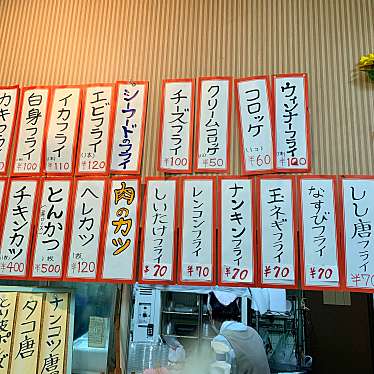 ウィンナーフライ
¥100
コロッケ
(1コ)
¥60
クリームコロッケ
¥50
チーズフライ
¥100
シーフードのフライ
エビフライ
(1本)
¥120
イカフライ
¥110
白身フライ
¥100
カキフライ
しし唐フライ
¥70
なすびフライ
¥70
玉ネギフライ
¥70
ナンキンフライ
¥70
レンコンフライ
¥70
しいたけフライ
¥70
肉のカツ
ヘレカツ
1枚
¥120
とんかつ
¥500
チキンカツ
¥400
ナンコツ唐
タコ唐